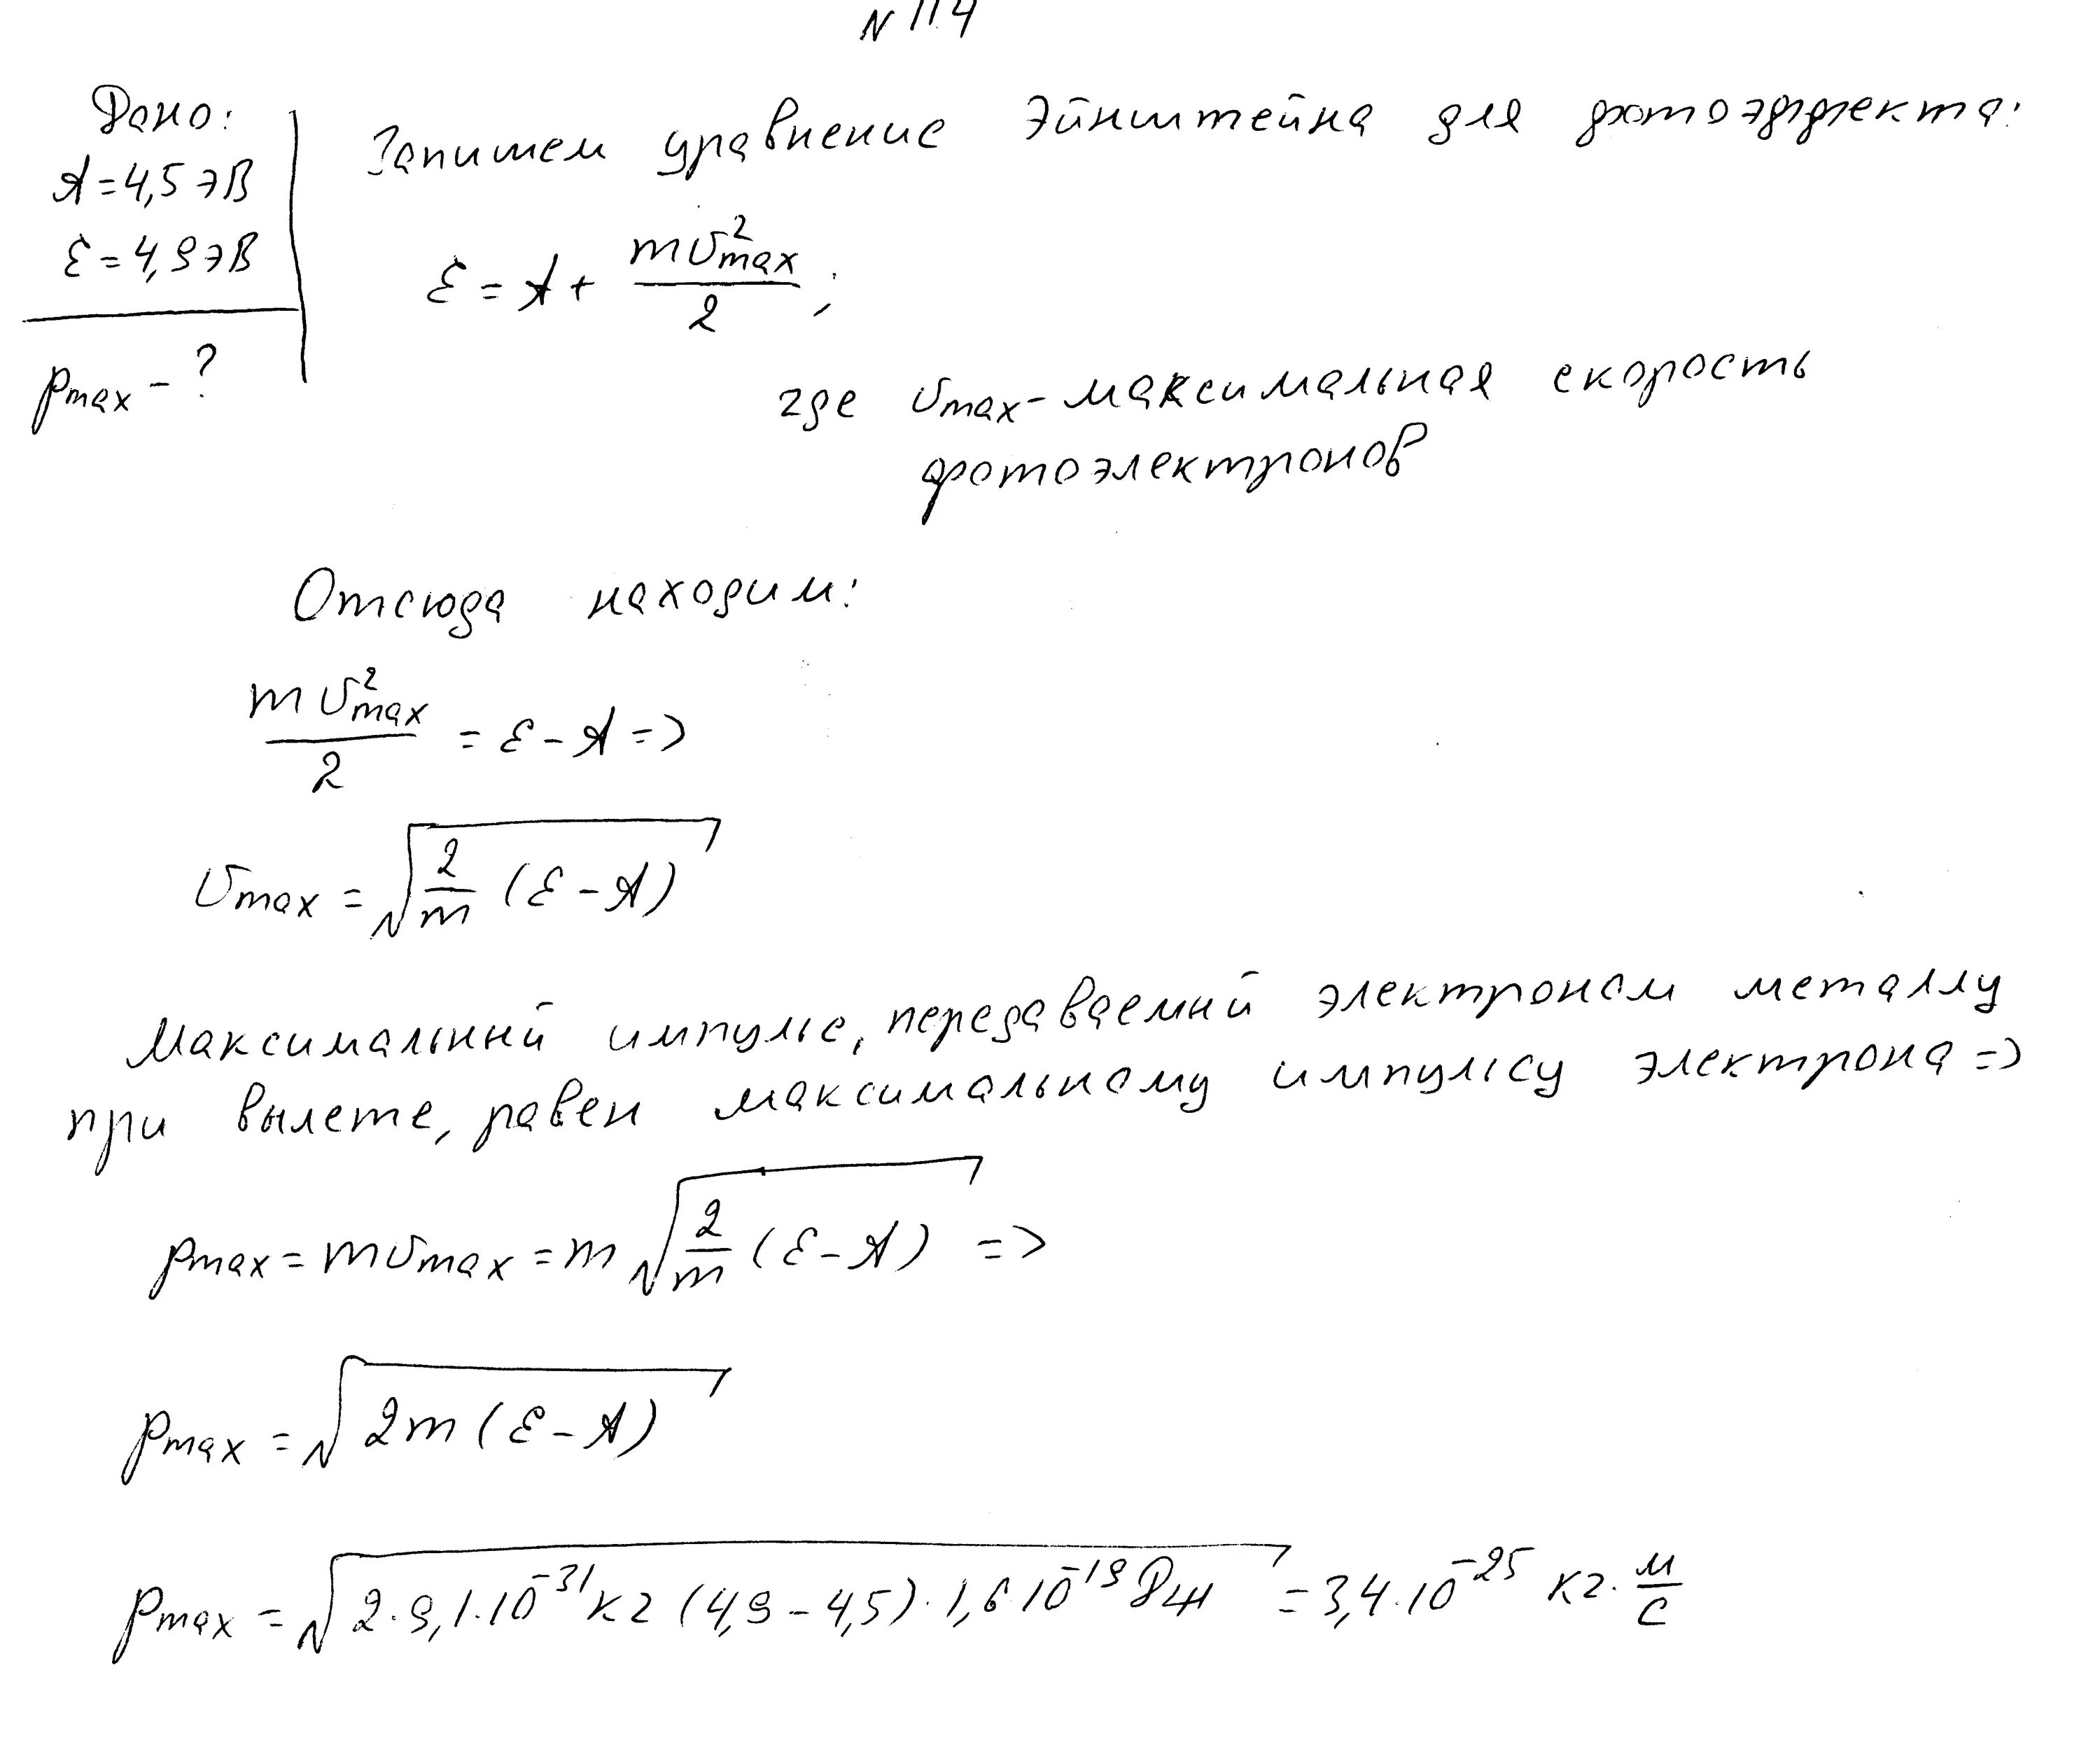 N 114
Дано:
A = 4,5 эВ
ε = 4,9 эВ
pmax - ?
Запишем уравнение Эйнштейна для фотоэффекта:
ε = A + mυ²max / 2 ;
где υmax - максимальная скорость
фотоэлектронов
Отсюда находим:
mυ²max / 2 = ε - A =>
υmax = √(2/m (ε - A))
Максимальный импульс, передаваемый электроном металлу
при вылете, равен максимальному импульсу электрона =>
pmax = mυmax = m √(2/m (ε - A)) =>
pmax = √(2m (ε - A))
pmax = √(2·9,1·10⁻³¹ кг (4,9 - 4,5)·1,6·10⁻¹⁹ Дж) = 3,4·10⁻²⁵ кг·м/с